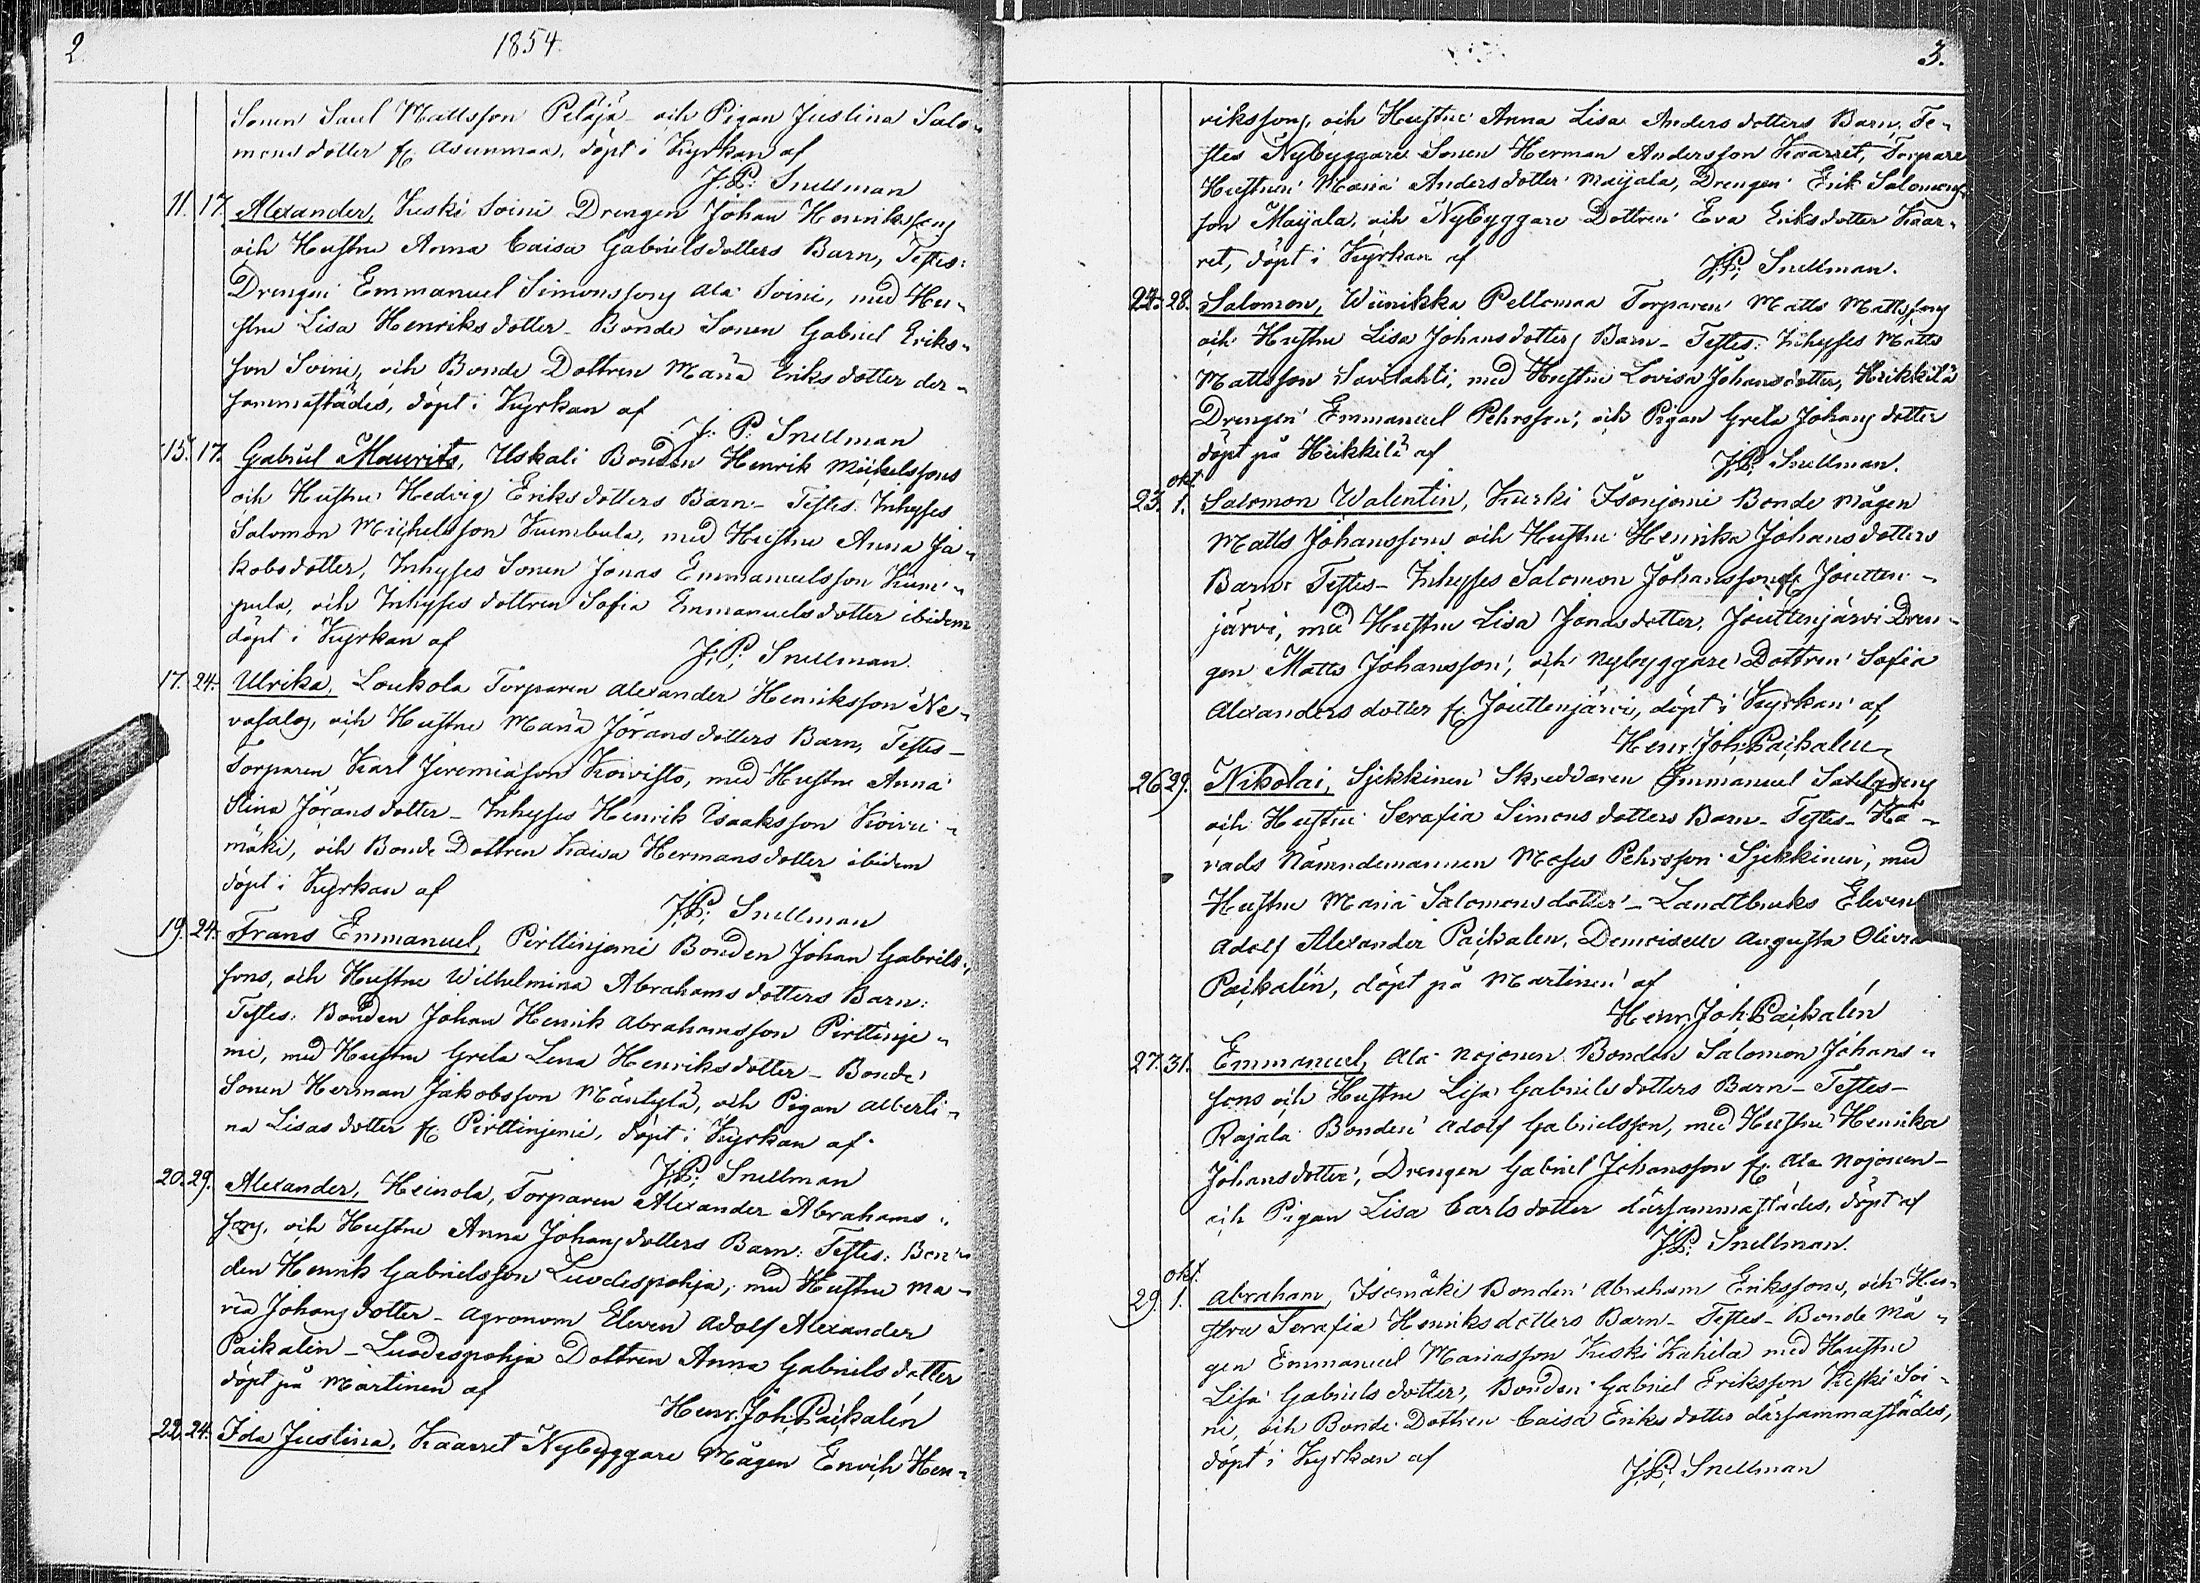 2
1854
Sonen Saul Mattsson Peläjä och Pigan Justina Salo-
monsdotter fr. Asunmaa, döpt i Kyrkan af
J.P. Snellman
11. 17. Alexander, Kuski Soini Drengen Johan Henrikssons
och Hustru Anna Caisa Gabrielsdotters Barn, Testes:
Drengen Emmanuel Simonssons Ala Soini, med Hu-
stru Lisa Henriksdotter - Bonde Sonen Gabriel Eriks-
son Soini, och Bonde Dottren Maria Eriksdotter der-
sammastädes, döpt i Kyrkan af
J. P. Snellman
15. 17. Gabriel Maurits, Uskali Bonden Henrik Michelssons
och Hustru Hedvig Eriksdotters Barn - Testes. Inhyses
Salomon Michelsson Kumbula, med Hustru Anna Ja-
kobsdotter, Inhyses Sonen Jonas Emmanuelsson Kum-
pula, och Inhyses dottren Sofia Emmanuelsdotter ibidem
döpt i Kyrkan af
J.P. Snellman.
17. 24. Ulrika, Loukola Torparen Alexander Henriksson Ne-
vasalos, och Hustru Maria Jöransdotters Barn, Testes -
Torparen Karl Jeremiason Koivisto, med Hustru Anna
Stina Jöransdotter - Inhyses Henrik Isaaksson Koivu-
mäki, och Bonde Dottren Kaisa Hermansdotter ibidem
döpt i Kyrkan af
J.P. Snellman
19. 24. Frans Emmanuel, Pirttinjemi Bonden Johan Gabriels-
sons, och Hustru Wilhelmina Abrahamsdotters Barn:
Testes: Bonden Johan Henrik Abrahamsson Pirttinje-
mi, med Hustru Greta Lena Henriksdotter - Bonde
Sonen Herman Jakobsson Mäntylä, och Pigan Alberti-
na Lisasdotter fr. Pirttinjemi, döpt i Kyrkan af
J.P. Snellman
20. 29. Alexander, Heinola, Torparen Alexander Abrahams-
sons, och Hustru Anna Johansdotters Barn: Testes: Bon-
den Henrik Gabrielsson Luodespohja, med Hustru Ma-
ria Johansdotter - Agronom Eleven Adolf Alexander
Paikalin - Luodespohja Dottren Anna Gabrielsdotter
döpt på Martinen af
Henr. Joh. Paikalén
22. 24. Ida Justina, Kaarret Nybyggare Mågen Henrik Hen-
3.
rikssons, och Hustru Anna Lisa Andersdotters Barn, Te-
stes Nybyggare Sonen Herman Andersson Kaarret, Torpare
Hustrun Maria Andersdotter Maijala, Drengen Erik Salomons-
son Maijala, och Nybyggare Dottren Eva Eriksdotter Kaar-
ret, döpt i Kyrkan af
J.P. Snellman.
24. 28. Salomon, Wiinikka Peltomaa Torparen Matts Mattssons
och Hustru Lisa Johansdotters Barn - Testes. Inhyses Matts
Mattsson Savilahti, med Hustru Lovisa Johansdotter, Heikkilä
Drengen Emmanuel Pehrsson, och Pigan Greta Johansdotter
döpt på Heikkilä af
J.P. Snellman.
okt.
23. 1. Salomon Walentin, Kuski Isonjemi Bonde Mågen
Matts Johanssons och Hustru Henrika Johansdotters
Barn: Testes - Inhyses Salomon Johansson fr. Joutten-
järvi, med Hustru Lisa Jonasdotter, Jouttenjärvi Dren-
gen Matts Johansson, och Nybyggare Dottren Sofia
Alexandersdotter fr. Jouttenjärvi, döpt i Kyrkan af
Henr. Joh. Paikalen
26. 29. Nikolai, Sjekkinen Skreddaren Emmanuel
och Hustru Serafia Simonsdotters Barn - Testes - Hä-
rads Nämndemannen Moses Pehrsson Sjekkinen, med
Hustru Maria Salomonsdotter - Landtbruks Eleven
Adolf Alexander Paikalen, Demoiselle Augusta Olivia
Paikalén, döpt på Martinen af
Henr. Joh. Paikalén
27. 31. Emmanuel, Ala Nojonen Bonden Salomon Johans-
sons och Hustru Lisa Gabrielsdotters Barn - Testes -
Rajala Bonden Adolf Gabrielsson, med Hustru Henrika
Johansdotter, Drengen Gabriel Johansson fr. Ala Nojonen -
och Pigan Lisa Carlsdotter därsammastädes, döpt af
J.P. Snellman.
okt.
29. 1. Abraham, Isomäki Bonden Abraham Erikssons, och Hu-
stru Serafia Henriksdotters Barn - Testes - Bonde Må-
gen Emmanuel Mariasson Kuski Kahila med Hustru
Lisa Gabrielsdotter, Bonden Gabriel Eriksson Kuski Soi-
ni, och Bonde Dottren Caisa Eriksdotter därsammastädes,
döpt i Kyrkan af
J.P. Snellman